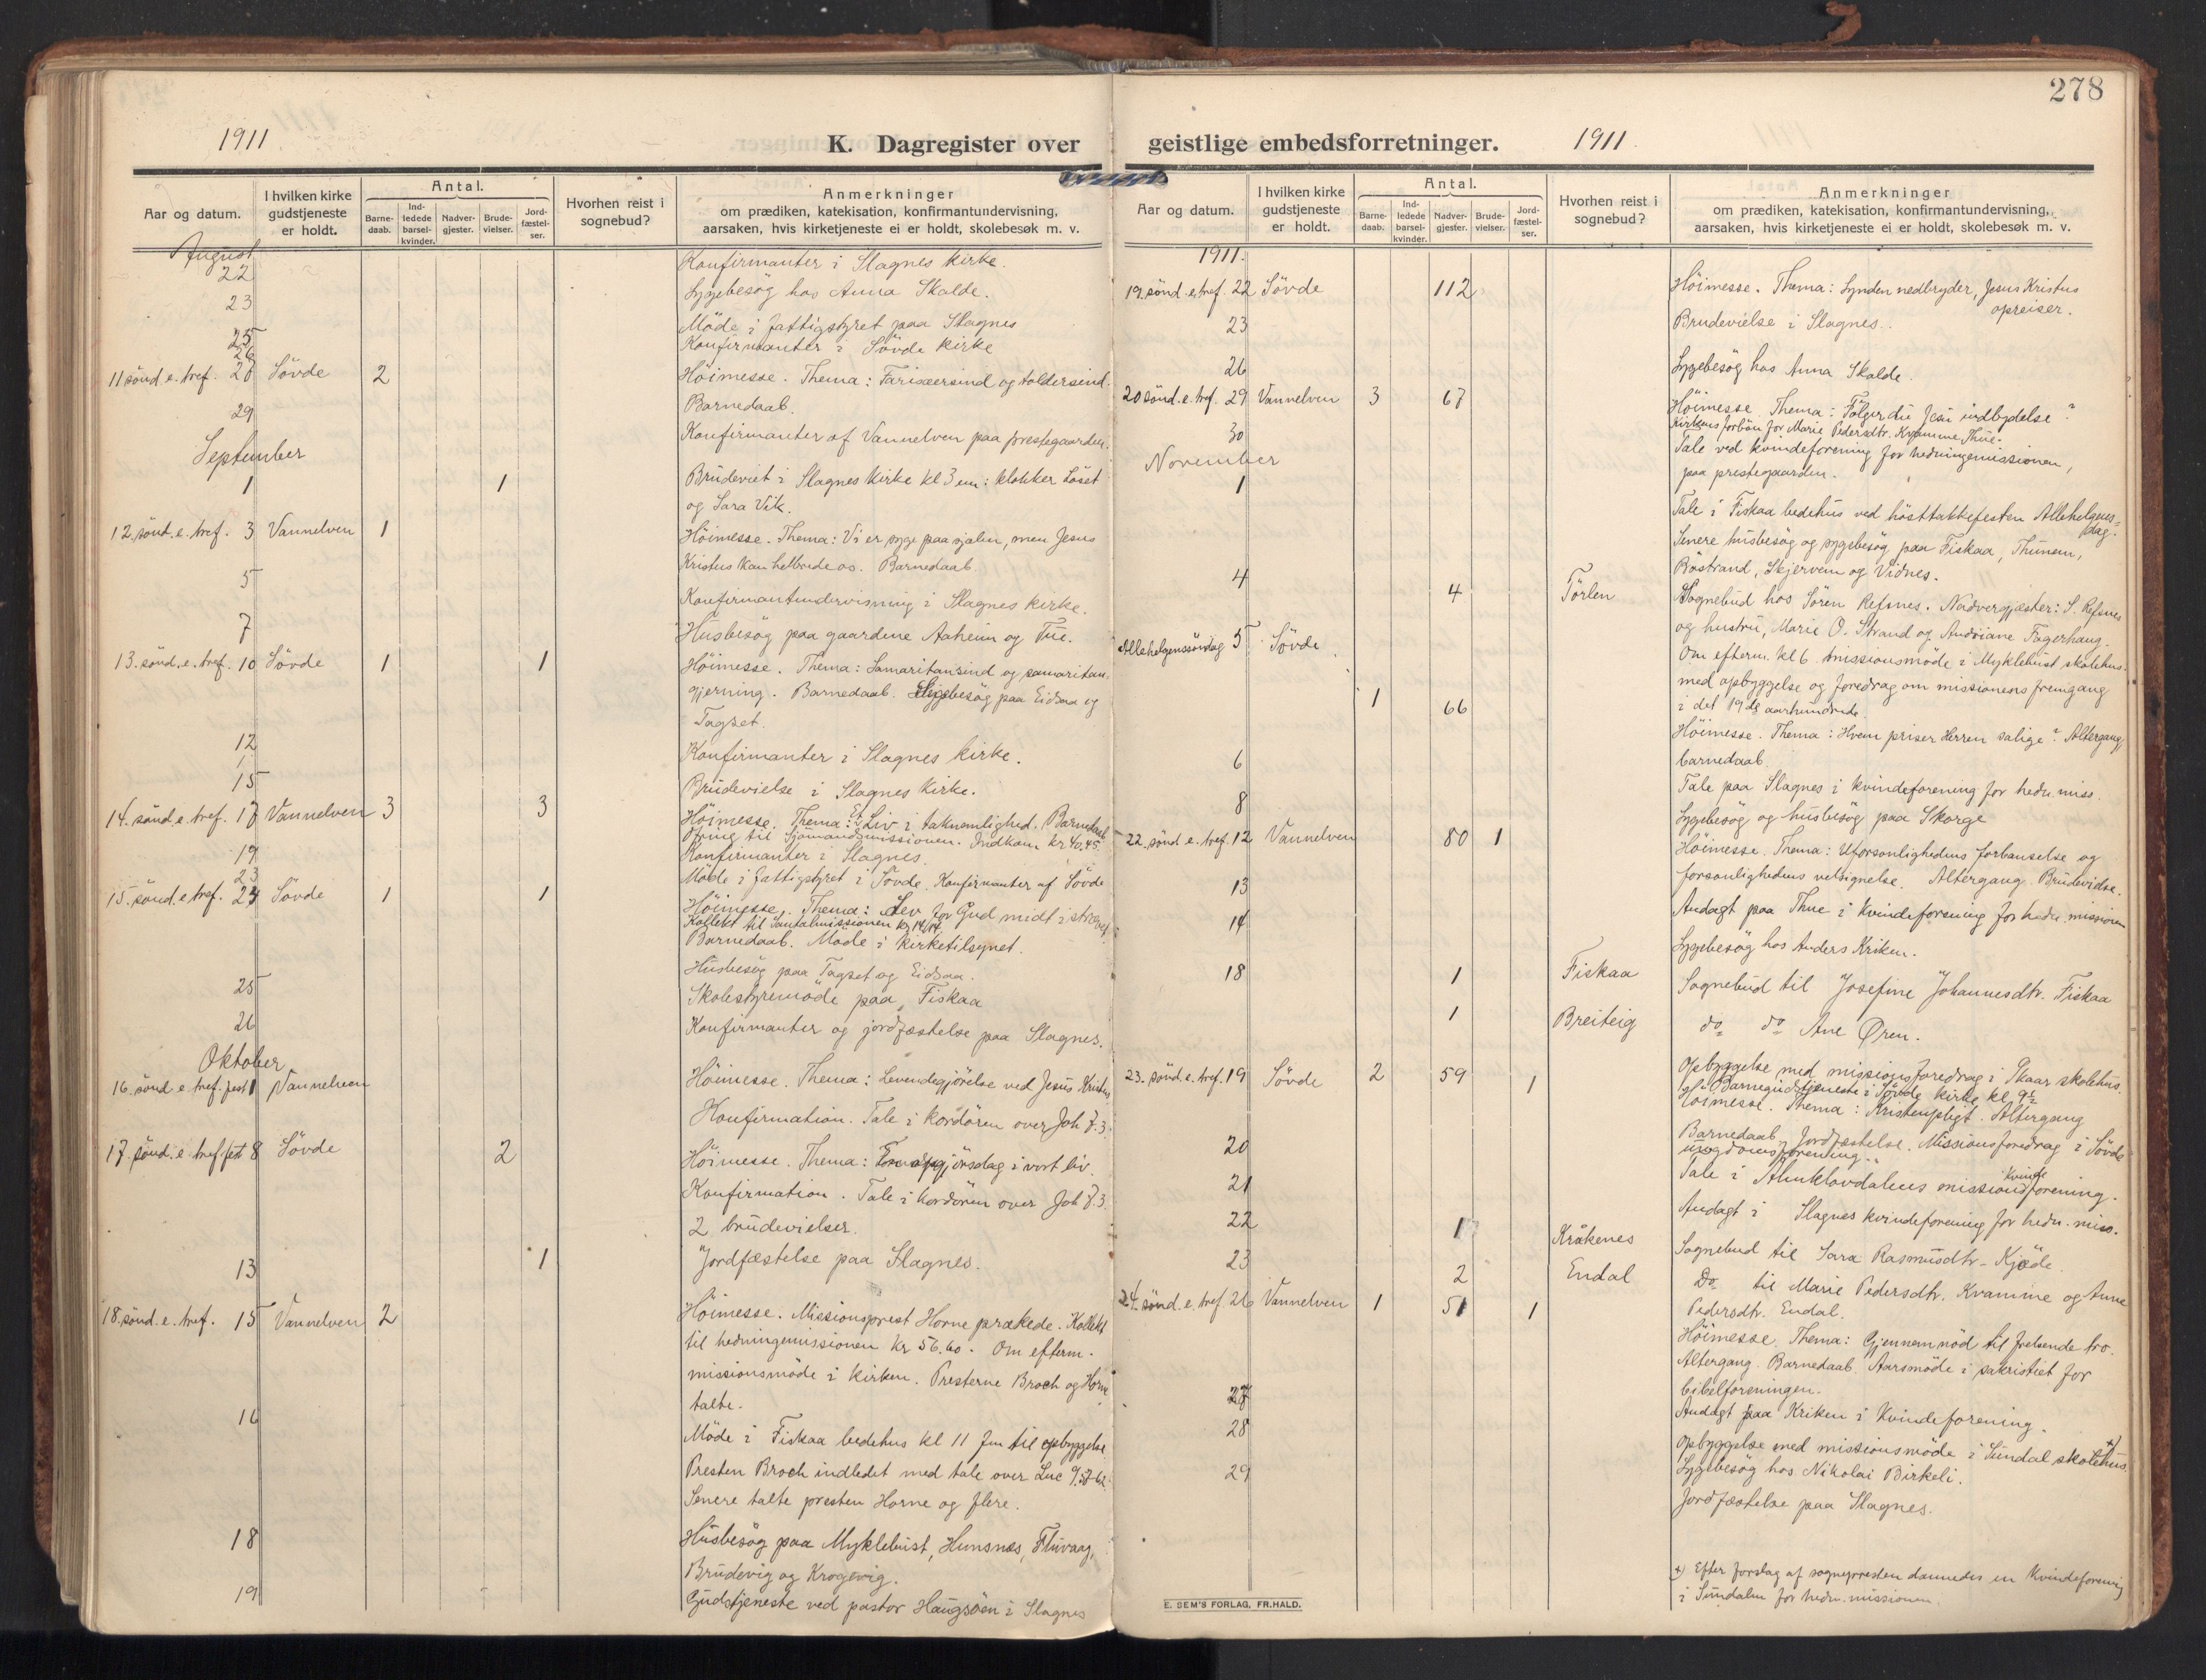 278
1911
K. Dagregister over
Aar og datum.
I hvilken kirke gudstjeneste er holdt.
Antal.
Barne-daab.
Ind-ledede barsel-kvinder.
Nadver-gjester.
Brude-vielser.
Jord-fæstel-ser.
Hvorhen reist i sognebud?
Anmerkninger
om prædiken, katekisation, konfirmantundervisning,
aarsaken, hvis kirketjeneste ei er holdt, skolebesøk m. v.
August
22 Konfirmanter i Slagnes kirke.
23 Sygebesøg hos Anna Skalde.
25 Møde i fattigstyret paa Slagnes
26 Konfirmanter i Søvde kirke
11 sønd. e. tref. 27 Søvde 2 Høimesse. Thema: Farisæersind og toldersind.
Barnedaab.
29 Konfirmanter af Vannelven paa prestegaarden.
September
1 1 Brudeviet i Slagnes kirke kl 3 em: klokker Løset
og Sara Vik.
12. sønd. e. tref. 3 Vannelven 1 Høimesse. Thema: Vi er syge paa sjælen, men Jesus
Kristus kan helbrede os. Barnedaab.
5 Konfirmantundervisning i Slagnes kirke.
7 Husbesøg paa gaardene Aaheim og Tue.
13. sønd. e. tref. 10 Søvde 1 1 Høimesse. Thema: Samaritansind og samaritan-
gjerning. Barnedaab. Sygebesøg paa Eidsaa og
Tagset.
12 Konfirmanter i Slagnes kirke.
15 Brudevielse i Slagnes kirke.
14. sønd. e. tref. 17 Vannelven 3 3 Høimesse. Thema: Et Liv i taknemlighed. Barnedaab
Ofring til Sjømandsmissionen. Indkom kr 40.45.
19 Konfirmanter i Slagnes.
23 Møde i fattigstyret i Søvde. Konfirmanter af Søvde
15. sønd. e. tref. 24 Søvde 1 1 Høimesse. Thema: Lev for Gud midt i strævet
Kollekt til Santalmissionen kr 14,14.
Barnedaab. Møde i kirketilsynet.
Husbesøg paa Tagset og Eidsaa.
25 Skolestyremøde paa Fiskaa
26 Konfirmanter og jordfæstelse paa Slagnes.
Oktober
16. sønd. e. tref. fest 1 Vannelven Høimesse. Thema: Levendegjørelse ved Jesus Kristus
Konfirmation. Tale i kordøren over Joh 7.3.
17. sønd. e. tref. fest 8 Søvde 2 Høimesse. Thema: En opgjørsdag i vort liv.
Konfirmation. Tale i kordøren over Joh 7.3.
2 brudevielser.
13 1 Jordfæstelse paa Slagnes.
18. sønd. e. tref. 15 Vannelven 2 Høimesse. Missionsprest Horne prækede. Kollekt
til hedningemissionen kr 56.60. Om efterm.
missionsmøde i kirken. Presterne Broch og Horne
talte.
16 Møde i Fiskaa bedehus kl 11 fm til opbyggelse
Presten Broch indledet med tale over Luc 9.57-62.
Senere talte presten Horne og flere.
18 Husbesøg paa Myklebust, Hunsnes, Fluvaag,
Brudevig og Krogevig.
19 Gudstjeneste ved pastor Haugsøen i Slagnes
geistlige embedsforretninger. 1911.
Aar og datum.
I hvilken kirke gudstjeneste er holdt.
Antal.
Barne-daab.
Ind-ledede barsel-kvinder.
Nadver-gjester.
Brude-vielser.
Jord-fæstel-ser.
Hvorhen reist i sognebud?
Anmerkninger
om prædiken, katekisation, konfirmantundervisning,
aarsaken, hvis kirketjeneste ei er holdt, skolebesøk m. v.
1911.
19. sønd. e. tref. 22 Søvde 112 Høimesse. Thema: Synden nedbryder, Jesus Kristus
opreiser.
23 Brudevielse i Slagnes.
26 Sygebesøg hos Anna Skalde.
20 sønd. e. tref. 29 Vannelven 3 67 Høimesse. Thema: Følger du Jesu indbydelse?
Kirkens forbøn for Marie Pedersdtr. Kvamme, Thue.
30 Tale ved kvindeforening for hedningemissionen,
paa prestegaarden.
November
1 Tale i Fiskaa bedehus ved høsttakkefesten Allehelgens-
dag.
Senere husbesøg og sygebesøg paa Fiskaa, Thunem,
Røstrand, Skjervem og Vidnes.
4 4 Tørlen Sognebud hos Søren Refsnes. Nadvergjæster: S. Refsnes
og hustru, Marie O. Strand og Andriane Fagerhaug.
Om efterm. kl 6 missionsmøde i Myklebust skolehus.
med opbyggelse og foredrag om missionens fremgang
i det 19de aarhundrede.
Allehelgenssøndag 5 Søvde 1 66 Høimesse. Thema: Hvem priser Herren salige? Altergang,
barnedaab.
6 Tale paa Slagnes i kvindeforening for hedn. miss.
8 Sygebesøg og husbesøg paa Skorge
22. sønd e. tref. 12 Vannelven 80 1 Høimesse. Thema: Uforsonlighedens forbandelse og
forsonlighedens velsignelse. Altergang. Brudevielse.
13 Andagt paa Thue i kvindeforening for hedn. missionen
14 Sygebesøg hos Anders Kriken.
18 1 Fiskaa Sognebud til Josefine Johannesdtr. Fiskaa
1 Breiteig do do Ane Øren.
Opbyggelse med missionsforedrag i Skaar skolehus.
Barnegudstjeneste i Søvde kirke kl 9½
23. sønd. e. tref. 19 Søvde 2 59 1 Høimesse. Thema: Kristenpligt. Altergang
Barnedaab. Jordfæstelse. Missionsforedrag i Søvde
ungdomsforening.
20 Tale i Almklovdalens missions kvindeforening.
21 Andagt i Slagnes kvindeforening for hedn. miss.
22 1 Kråkenes Sognebud til Sara Rasmusdtr. Kjøde.
23 2 Endal Do til Marie Pedersdtr. Kvamme og Anne
Pedersdtr. Endal.
24. sønd. e. tref. 26 Vannelven 1 51 1 Høimesse. Thema: Gjennem nød til frelsende tro.
Altergang. Barnedaab. Aarsmøde i sakristiet for
bibelforeningen.
27 Andagt paa Kriken i kvindeforening.
28 Opbyggelse med missionsmøde i Sundal skolehus. x)
Sygebesøg hos Nikolai Birkeli.
29 Jordfæstelse paa Slagnes.
x) Efter forslag af sognepresten dannedes en kvindeforening
i Sundalen for hedn. missionen.
E. SEM'S FORLAG, FR.HALD.